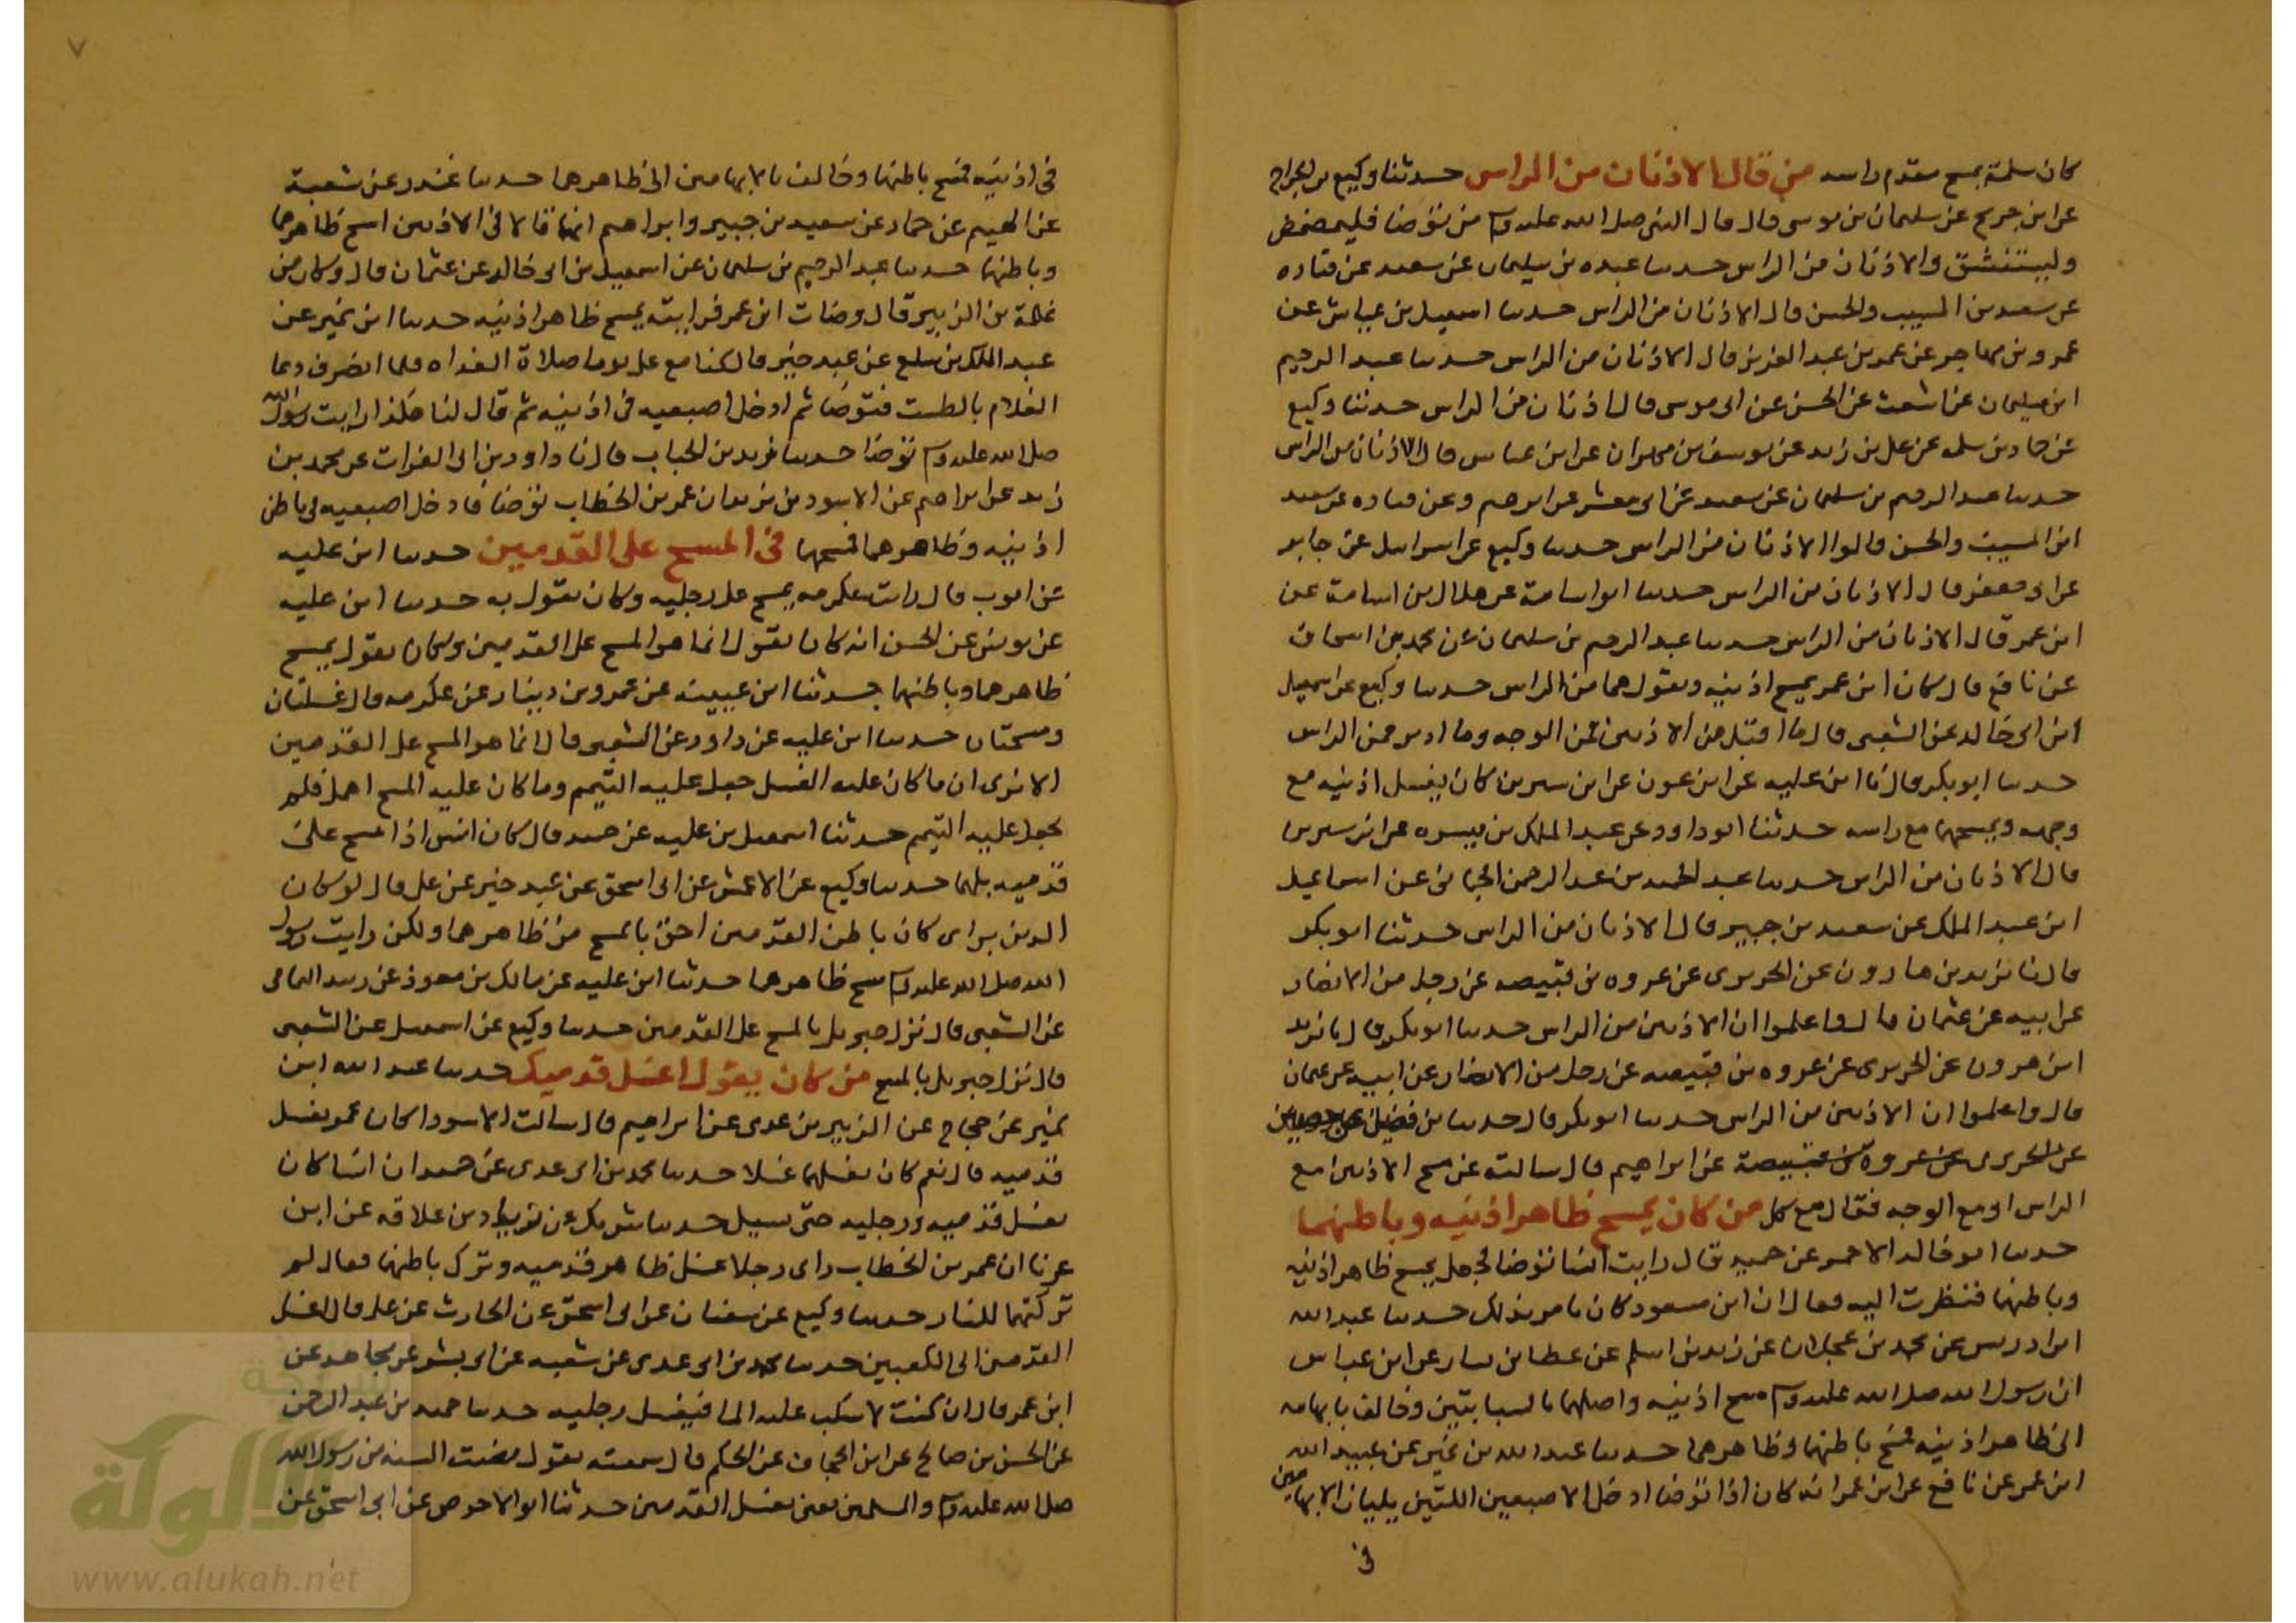 كان سلمة يمسح مقدم راسه من قال الاذنان من الراس حدثنا وكيع بن الجراح
عن ابن جريج عن سليمان بن موسى قال قال النبي صلى الله عليه وسلم من توضا فليمضمض
وليستنشق والاذنان من الراس حدثنا عبده بن سليمان عن سعيد عن قتاده
عن سعيد بن المسيب والحسن قال الاذنان من الراس حدثنا اسمعيل بن عياش عن
عمرو بن مهاجر عن عمر بن عبد العزيز قال الاذنان من الراس حدثنا عبد الرحيم
ابن سليمان عن اشعث عن الحسن عن ابى موسى قال الاذنان من الراس حدثنا وكيع
عن حماد بن سلمه عن على بن زيد عن يوسف بن مهران عن ابن عباس قال الاذنان من الراس
حدثنا عبد الرحيم بن سليمان عن سعيد عن ابى معشر عن ابرهيم وعن قتاده عن سعيد
ابن المسيب والحسن قالوا الاذنان من الراس حدثنا وكيع عن اسرائيل عن جابر
عن ابى جعفر قال الاذنان من الراس حدثنا ابو اسامة عن هلال بن اسامة عن
ابن عمر قال الاذنان من الراس حدثنا عبد الرحيم بن سليمان عن محمد بن اسحاق
عن نافع قال كان ابن عمر يمسح اذنيه ويقول هما من الراس حدثنا وكيع عن اسمعيل
ابن ابى خالد عن الشعبى قال ما اقبل من الاذنين فمن الوجه وما ادبر فمن الراس
حدثنا ابو بكر قال نا ابن عليه عن ابن عون عن ابن سيرين كان يغسل اذنيه مع
وجهه ويمسحهما مع راسه حدثنا ابو داود عن عبد الملك بن ميسره عن ابن سيرين
قال الاذنان من الراس حدثنا عبد الحميد بن عبد الرحمن الحمانى عن اسماعيل
ابن عبد الملك عن سعيد بن جبير قال الاذنان من الراس حدثنا ابو بكر
قال نا يزيد بن هارون عن الجريرى عن عروه بن قبيصه عن رجل من الانصار
عن ابيه عن عثمان قال واعلموا ان الاذنين من الراس حدثنا ابو بكر قال نا يزيد
ابن هرون عن الجريرى عن عروه بن قبيصه عن رجل من الانصار عن ابيه عن عثمان
قال واعلموا ان الاذنين من الراس حدثنا ابو بكر قال حدثنا بن فضيل عن حصين
عن الجريرى عن عروة بن قبيصة عن ابراهيم قال سالته عن مسح الاذنين امع
الراس او مع الوجه فقال مع كل من كان يمسح ظاهر اذنيه وباطنهما
حدثنا ابو خالد الاحمر عن حميد قال رايت انسا توضا فجعل يمسح ظاهر اذنيه
وباطنهما فنظرت اليه فقال ان ابن مسعود كان يامر بذلك حدثنا عبد الله
ابن ادريس عن محمد بن عجلان عن زيد بن اسلم عن عطا بن يسار عن ابن عباس
ان رسول الله صلى الله عليه وسلم مسح اذنيه واصلهما بالسبابتين وخالف بابهامه
الى ظاهر اذنيه فمسح باطنهما وظاهرهما حدثنا عبد الله بن نمير عن عبيد الله
ابن عمر عن نافع عن ابن عمر انه كان اذا توضا ادخل الاصبعين اللتين يليان الابهامين
فى
٧
فى اذنيه فمسح باطنهما وخالف بالابهامين الى ظاهرهما حدثنا غندر عن شعبة
عن الهيثم عن حماد عن سعيد بن جبير وابراهيم انهما قالا فى الاذنين امسح ظاهرهما
وباطنهما حدثنا عبد الرحيم بن سليمان عن اسمعيل بن ابى خالد عن عثمان قال وكان من
غلمة بن الزبير قال وضات ابن عمر فرايته يمسح ظاهر اذنيه حدثنا ابن نمير عن
عبد الملك بن سلع عن عبد خير قال كنا مع على يوما صلاة الغداه فلما انصرف دعا
الغلام بالطست فتوضا ثم ادخل اصبعيه فى اذنيه ثم قال لنا هكذا رايت رسول الله
صلى الله عليه وسلم توضا حدثنا زيد بن الحباب قال نا داود بن ابى الفرات عن محمد بن
زيد عن ابراهيم عن الاسود بن يزيد ان عمر بن الخطاب توضا فادخل اصبعيه فى باطن
اذنيه وظاهرهما فمسحهما فى المسح على القدمين حدثنا ابن عليه
عن ايوب قال رايت عكرمه يمسح على رجليه وكان يقول به حدثنا ابن عليه
عن يونس عن الحسن انه كان يقول انما هو المسح على القدمين وكان يقول يمسح
ظاهرهما وباطنهما حدثنا ابن عيينه عن عمرو بن دينار عن عكرمه قال غسلتان
ومسحتان حدثنا ابن عليه عن داود عن الشعبى قال انما هو المسح على القدمين
الا ترى ان ما كان عليه الغسل جعل عليه التيمم وما كان عليه المسح اهمل فلم
يجعل عليه التيمم حدثنا اسمعيل بن عليه عن حميد قال كان انس اذا مسح على
قدميه بلهما حدثنا وكيع عن الاعمش عن ابى اسحق عن عبد خير عن على قال لو كان
الدين براى كان باطن القدمين احق بالمسح من ظاهرهما ولكن رايت رسول
الله صلى الله عليه وسلم مسح ظاهرهما حدثنا ابن عليه عن مالك بن مغول عن زبيد اليامى
عن الشعبى قال نزل جبريل بالمسح على القدمين حدثنا وكيع عن اسمعيل عن الشعبى
قال نزل جبريل بالمسح من كان يقول اغسل قدميك حدثنا عبد الله ابن
نمير عن حجاج عن الزبير بن عدى عن ابراهيم قال سالت الاسود اكان عمر يغسل
قدميه قال نعم كان يغسلهما غسلا حدثنا محمد بن ابى عدى عن حميد ان انسا كان
يغسل قدميه ورجليه حتى يسيل حدثنا شريك عن زياد بن علاقه عن ابن
عرنا ان عمر بن الخطاب راى رجلا غسل ظاهر قدميه وترك باطنهما فقال لم
تركتهما للنار حدثنا وكيع عن سفيان عن ابى اسحق عن الحارث عن على قال اغسل
القدمين الى الكعبين حدثنا محمد بن ابى عدى عن شعبه عن ابى بشر عن مجاهد عن
ابن عمر قال ان كنت لاسكب عليه الما فيغسل رجليه حدثنا حميد بن عبد الرحمن
عن الحسن بن صالح عن ابن الجحاف عن الحكم قال سمعته يقول مضت السنه من رسول الله
صلى الله عليه وسلم والمسلمين يعنى بغسل القدمين حدثنا ابو الاحوص عن ابى اسحق عن
شبكة
الألوكة
www.alukah.net